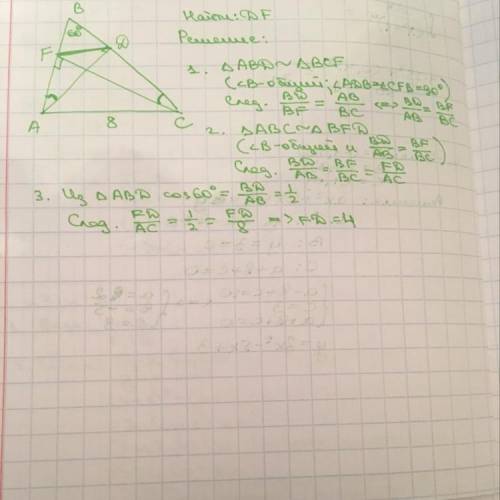 B
60°
F
D
A
8
C
Найти: DF
Решение:
1. △ABD ~ △BCF
(∠B-общий; ∠ADB=∠CFB=90°)
След. BD/BF = AB/BC <=> BD/AB = BF/BC
2. △ABC ~ △BFD
(∠B-общий и BD/AB = BF/BC)
След. BD/AB = BF/BC = FD/AC
3. Из △ABD cos60° = BD/AB = 1/2
След. FD/AC = 1/2 = FD/8 => FD = 4